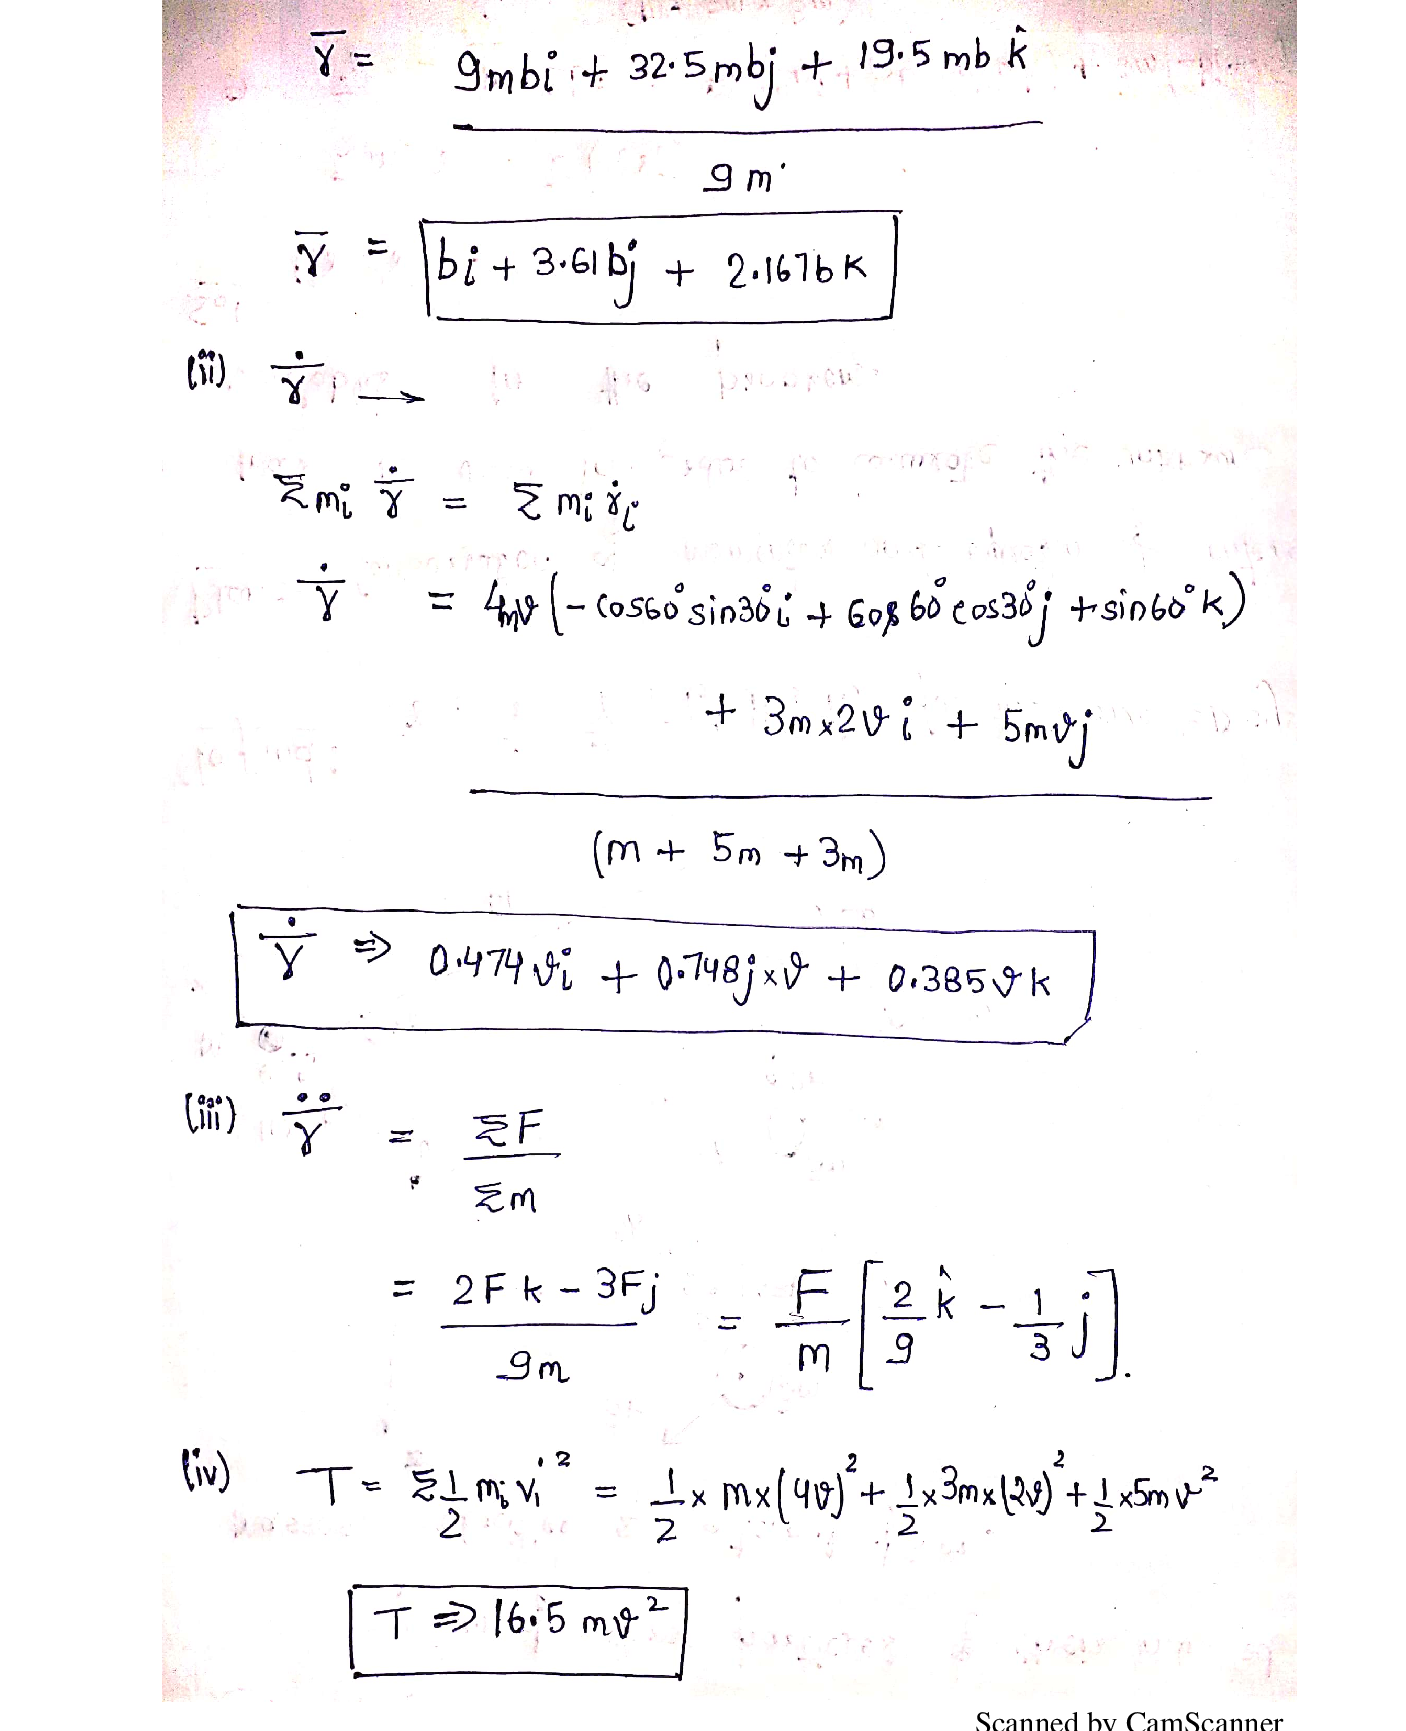 γ̄ = 9mbi + 32.5mbj + 19.5 mb k̂
9m
γ̄ = bi + 3.61bj + 2.167bk
(ii) γ̄̇ →
Σmi γ̄̇ = Σ mi γ̇i
γ̄̇ = 4mv (- cos60° sin30° i + cos 60° cos30° j + sin60° k)
+ 3m x 2v i + 5mvj
(m + 5m + 3m)
γ̄̇ ⇒ 0.474 vi + 0.748j x v + 0.385 v k
(iii) γ̄̈ = ΣF
Σm
= 2Fk - 3Fj / 9m = F/m [2/9 k̂ - 1/3 j].
(iv) T = Σ 1/2 mi vi² = 1/2 x m x (4v)² + 1/2 x 3m x (2v)² + 1/2 x 5m v²
T ⇒ 16.5 mv²
Scanned by CamScanner